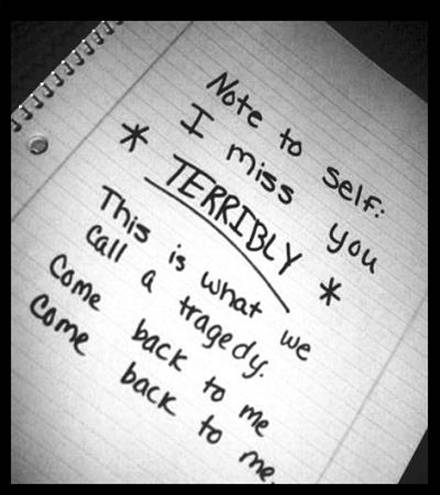 Note to self:
I miss you
* TERRIBLY *
This is what we
call a tragedy.
Come back to me
Come back to me.